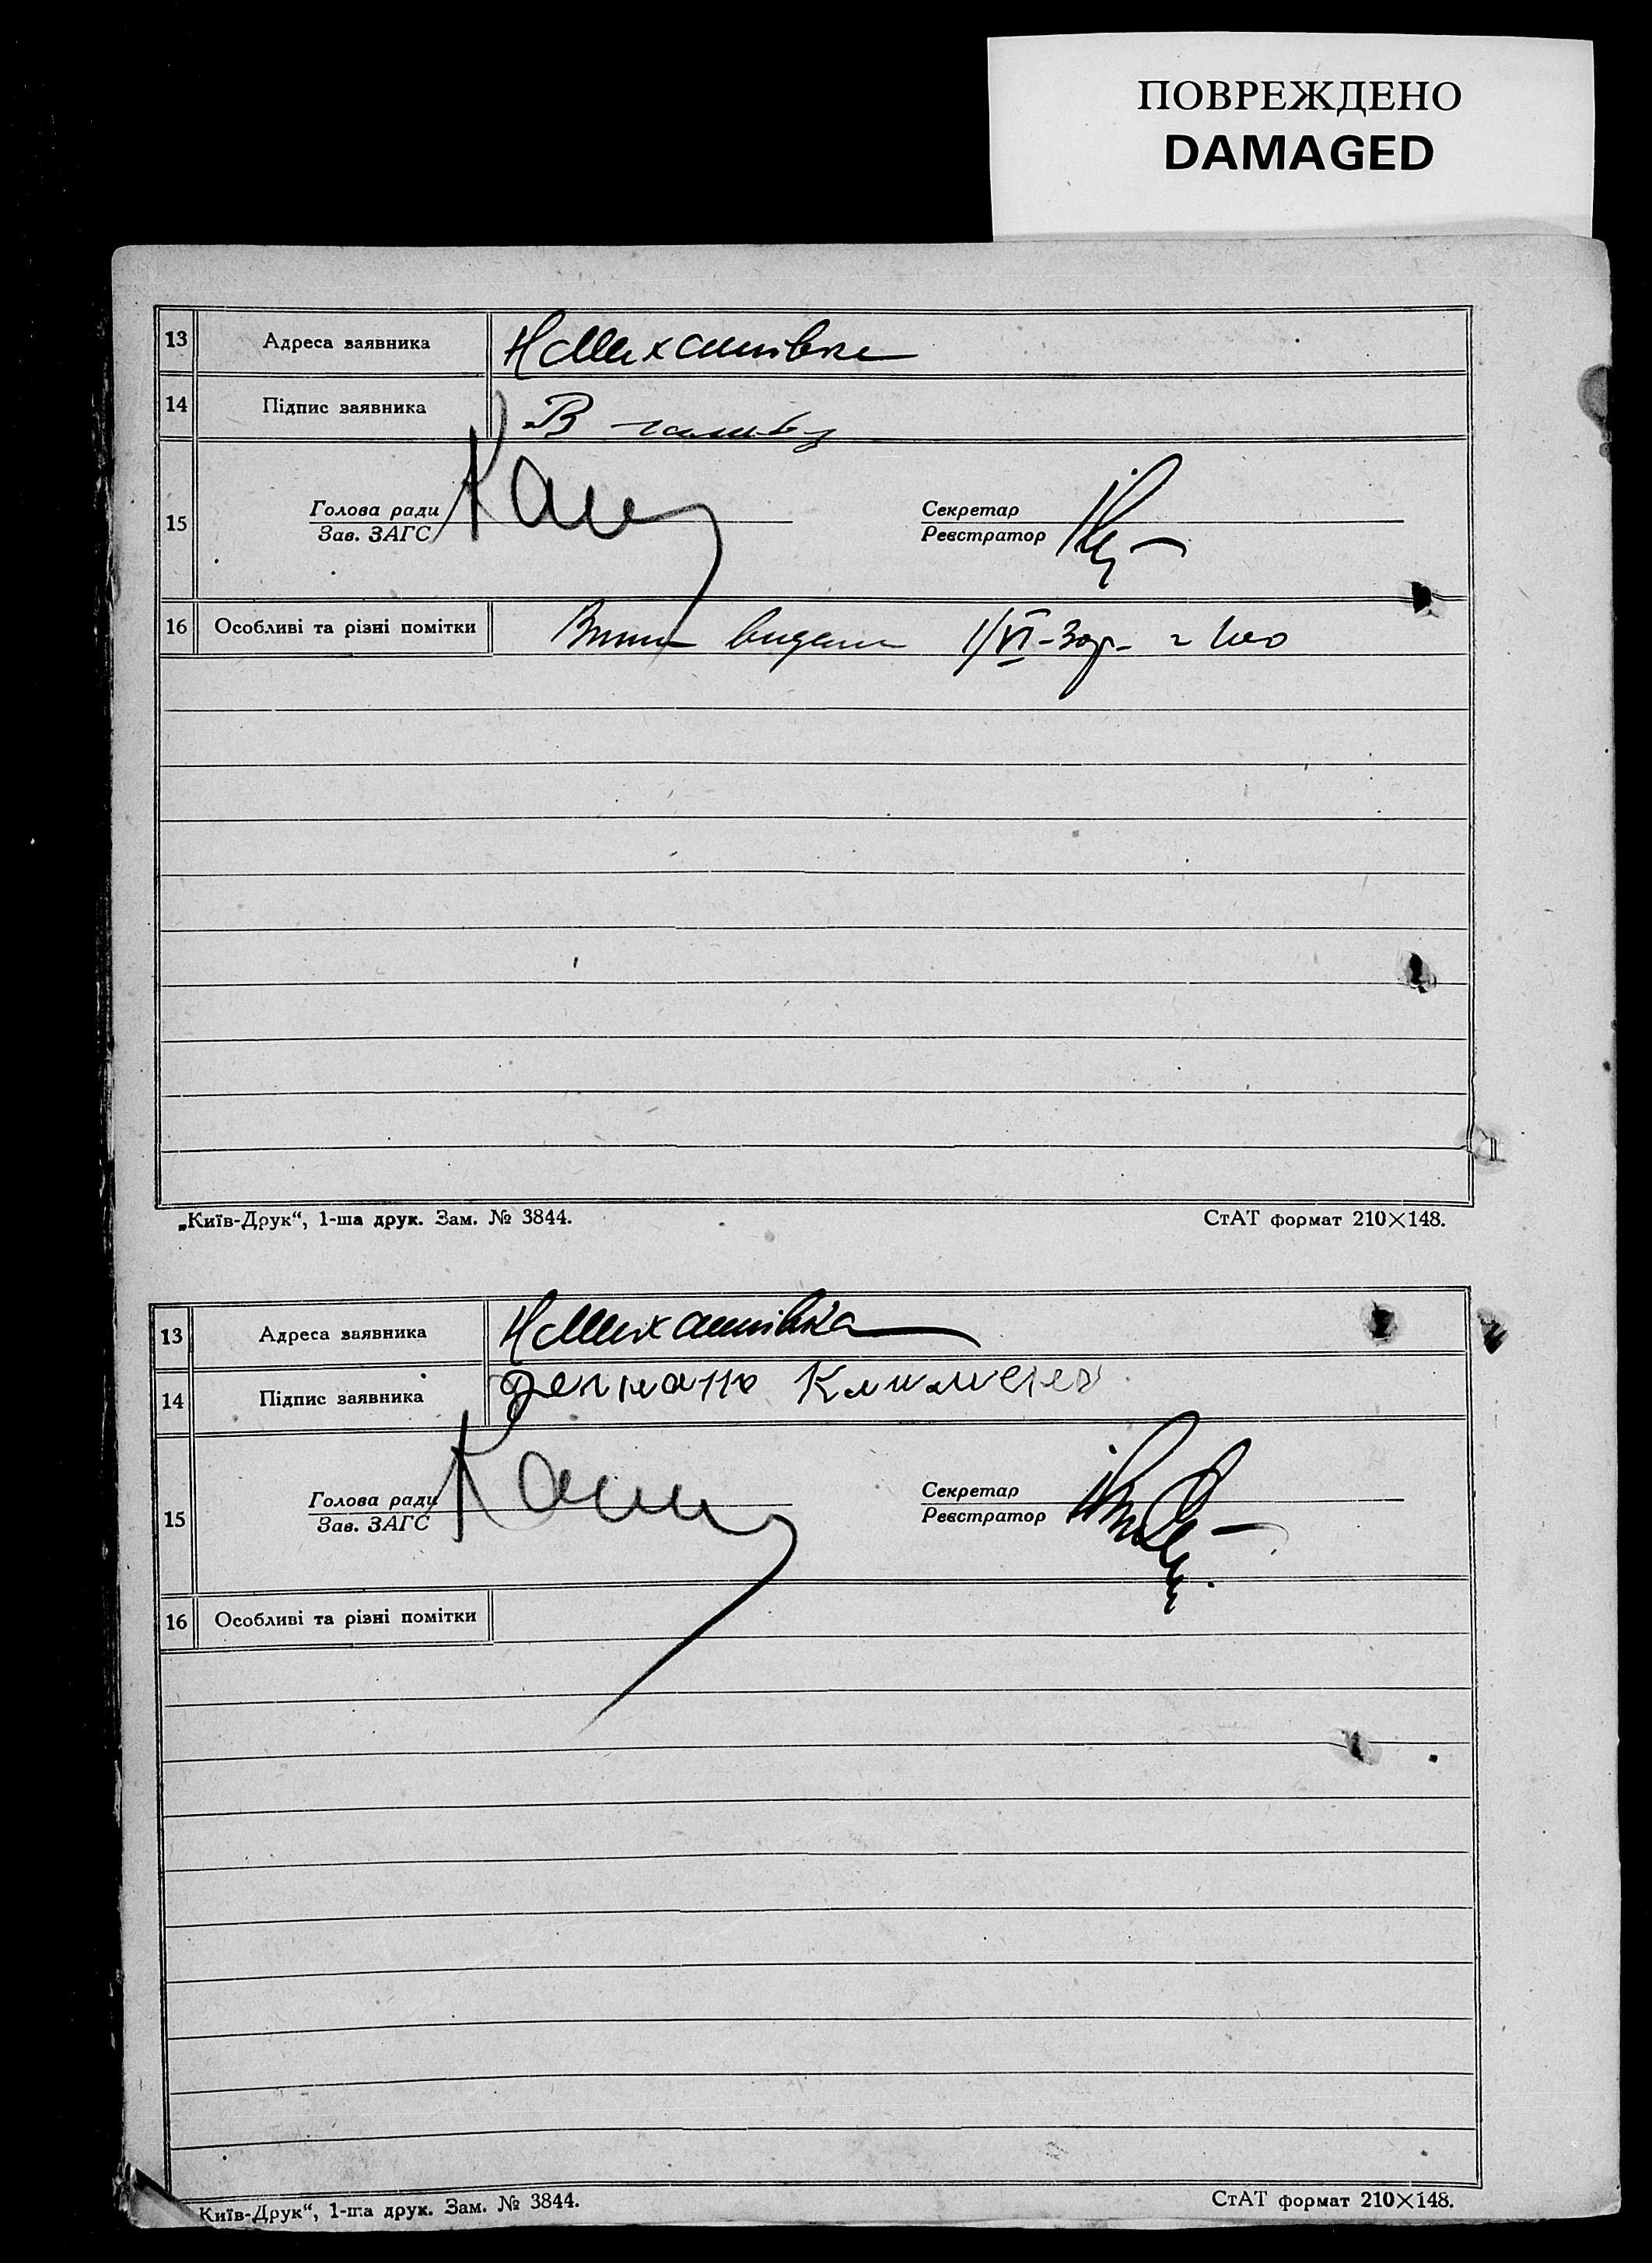 ПОВРЕЖДЕНО
DAMAGED
13 Адреса заявника Н Михайлівка
14 Підпис заявника В
15 Голова ради Секретар
Зав. ЗАГС Реєстратор
16 Особливі та різні помітки видана 1/VI-30р.
„Київ-Друк“, 1-ша друк. Зам. № 3844. СтАТ формат 210×148.
13 Адреса заявника Н Михайлівка
14 Підпис заявника
15 Голова ради Секретар
Зав. ЗАГС Реєстратор
16 Особливі та різні помітки
Київ-Друк“, 1-ша друк. Зам. № 3844. СтАТ формат 210×148.